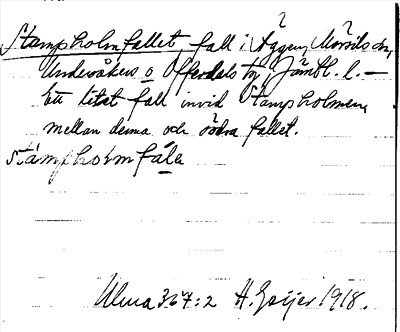 Stampholmfallet, fall i Äggen, Mörsils sn,
Undersåkers o. Offerdals tg, Jämtl. l. —
Ett litet fall invid Stampholmen,
mellan denna och södra fallet.
stámphòlmfála
Ulma 367:2 H. Geijer 1918.